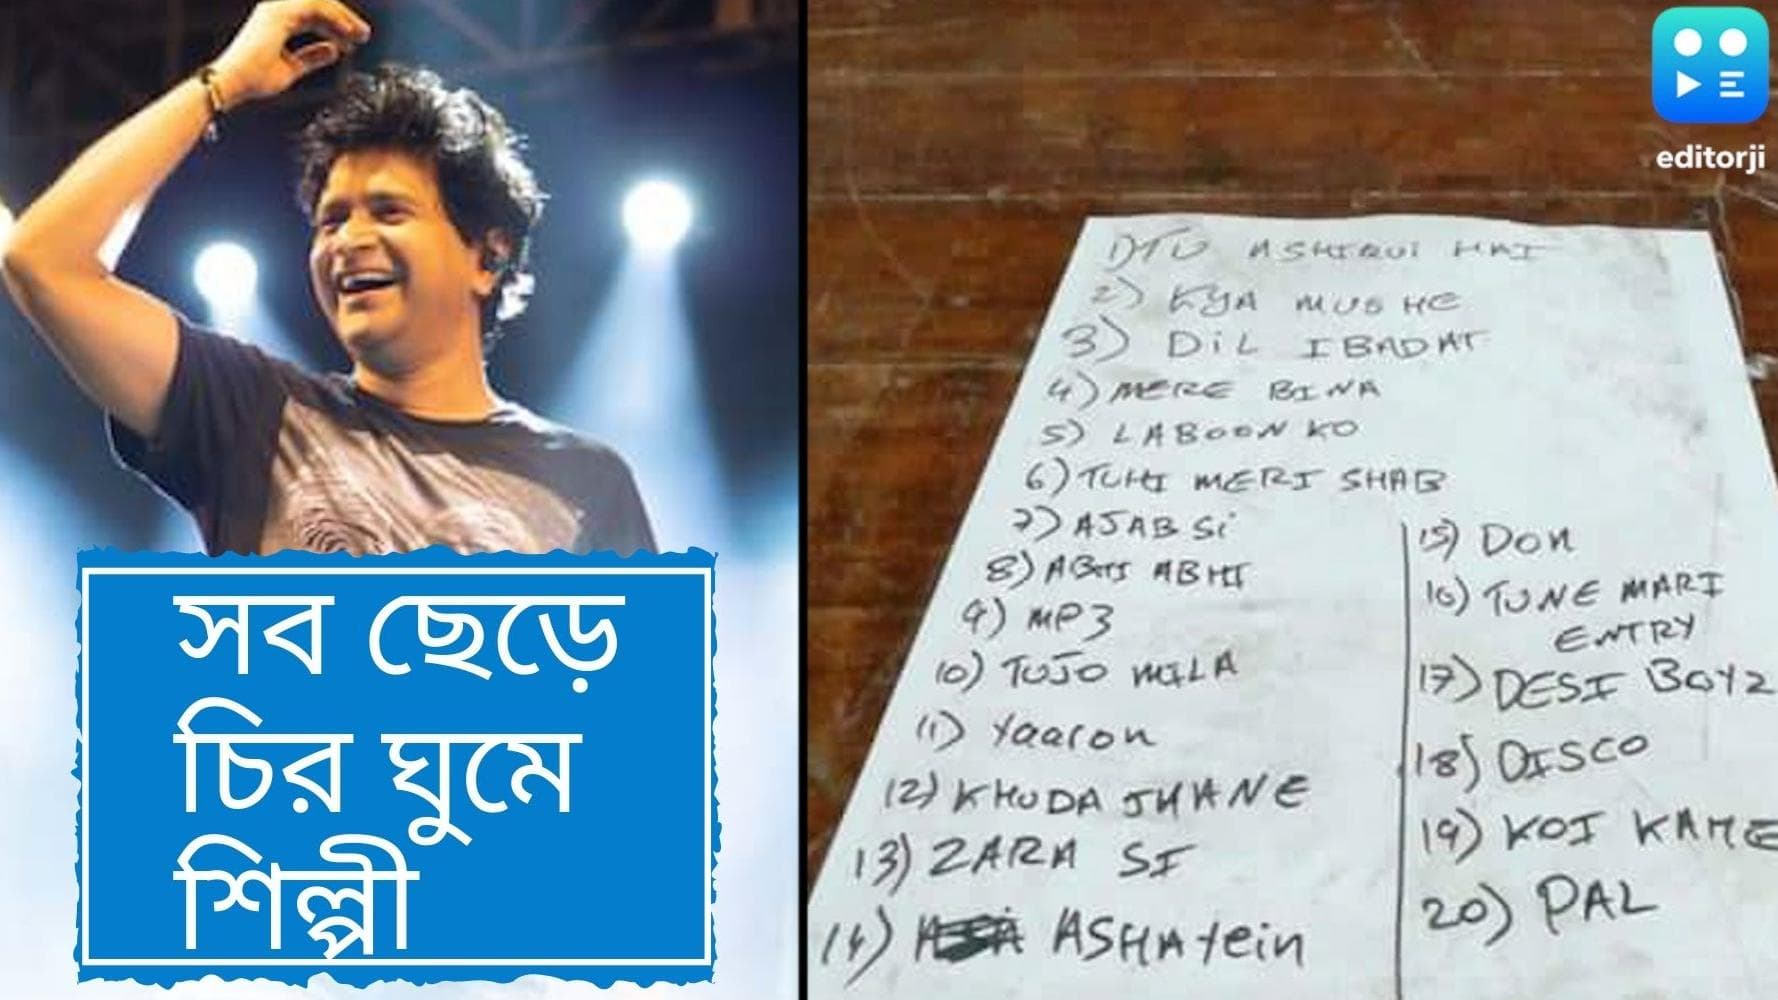 সব ছেড়ে
চির ঘুমে
শিল্পী
editorji
1) TU ASHIQUI HAI
2) KYA MUJHE
3) DIL IBADAT
4) MERE BINA
5) LABOON KO
6) TUHI MERI SHAB
7) AJAB Si
8) ABHI ABHI
9) MP3
10) TUJO MILA
11) Yaaron
12) KHUDA JHANE
13) ZARA SI
14) ASHAYein
15) DON
16) TUNE MARI
ENTRY
17) DESI BOYZ
18) DISCO
19) KOI KAHE
20) PAL